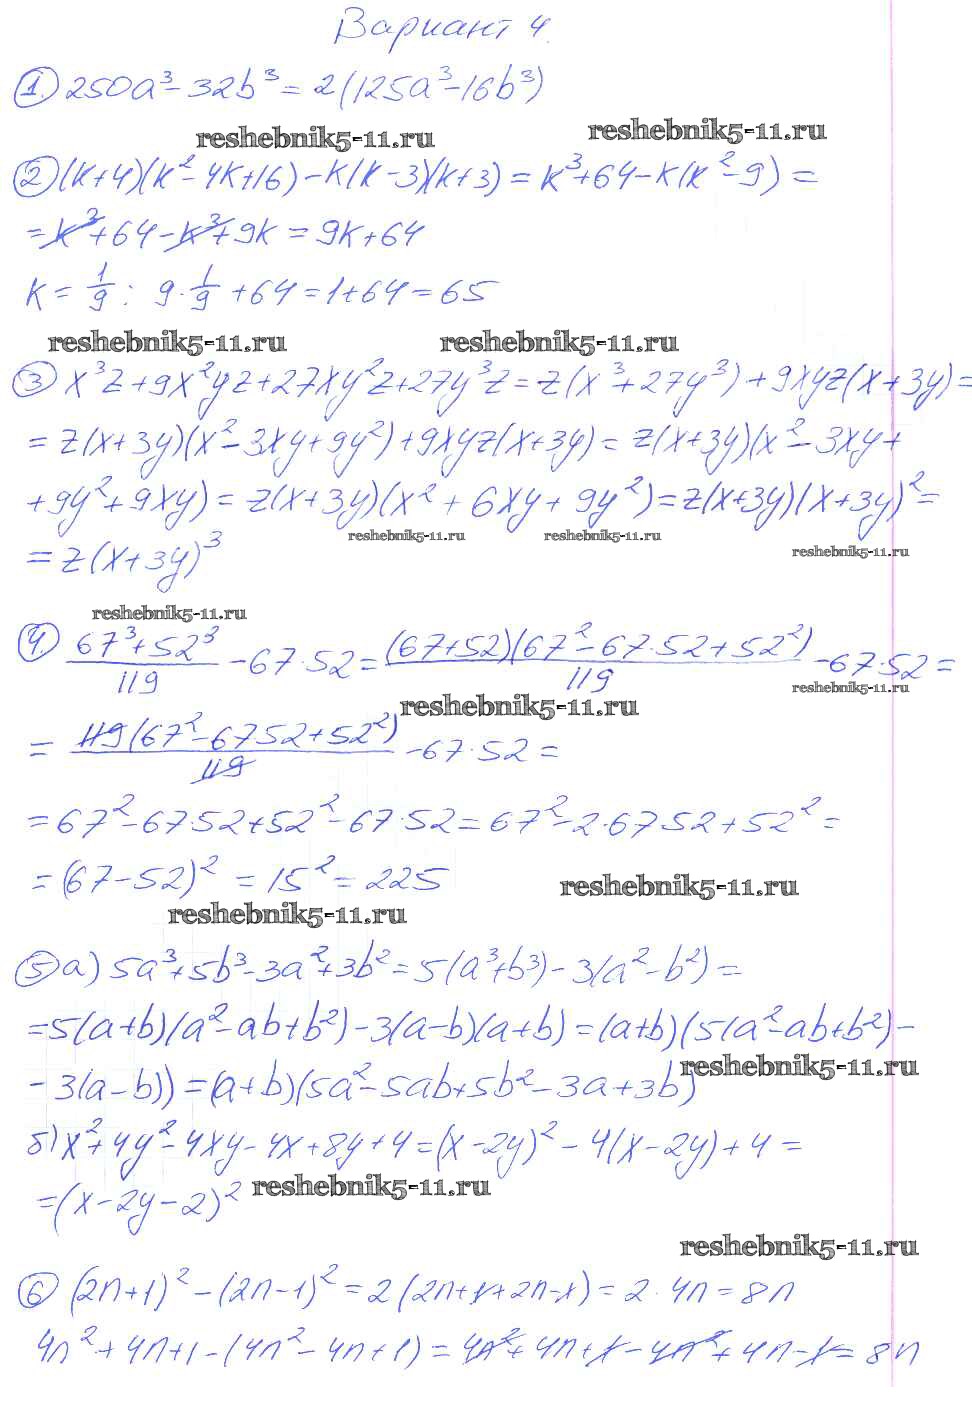 Вариант 4.
1. 250a³ - 32b³ = 2(125a³ - 16b³)
reshebnik5-11.ru reshebnik5-11.ru
2 (k+4)(k² - 4k + 16) - k(k-3)(k+3) = k³ + 64 - k(k² - 9) =
= k³ + 64 - k³ + 9k = 9k + 64
k = 1/9 : 9 · 1/9 + 64 = 1 + 64 = 65
reshebnik5-11.ru reshebnik5-11.ru
3 x³z + 9x²yz + 27xy²z + 27y³z = z(x³ + 27y³) + 9xyz(x + 3y) =
= z(x+3y)(x² - 3xy + 9y²) + 9xyz(x+3y) = z(x+3y)(x² - 3xy +
+ 9y² + 9xy) = z(x+3y)(x² + 6xy + 9y²) = z(x+3y)(x+3y)² =
reshebnik5-11.ru reshebnik5-11.ru reshebnik5-11.ru
= z(x+3y)³
reshebnik5-11.ru
4 (67³ + 52³)/119 - 67·52 = (67+52)(67² - 67·52 + 52²)/119 - 67·52 =
reshebnik5-11.ru reshebnik5-11.ru
= 119(67² - 67 52 + 52²)/119 - 67·52 =
= 67² - 67·52 + 52² - 67·52 = 67² - 2·67 52 + 52² =
= (67 - 52)² = 15² = 225
reshebnik5-11.ru
reshebnik5-11.ru
5 а) 5a³ + 5b³ - 3a² + 3b² = 5(a³ + b³) - 3(a² - b²) =
= 5(a+b)(a² - ab + b²) - 3(a-b)(a+b) = (a+b)(5(a² - ab + b²) -
reshebnik5-11.ru
- 3(a-b)) = (a+b)(5a² - 5ab + 5b² - 3a + 3b)
б) x² + 4y² - 4xy - 4x + 8y + 4 = (x - 2y)² - 4(x - 2y) + 4 =
= (x - 2y - 2)²
reshebnik5-11.ru
reshebnik5-11.ru
6 (2n+1)² - (2n-1)² = 2(2n + 1 + 2n - 1) = 2 · 4n = 8n
4n² + 4n + 1 - (4n² - 4n + 1) = 4n² + 4n + 1 - 4n² + 4n - 1 = 8n